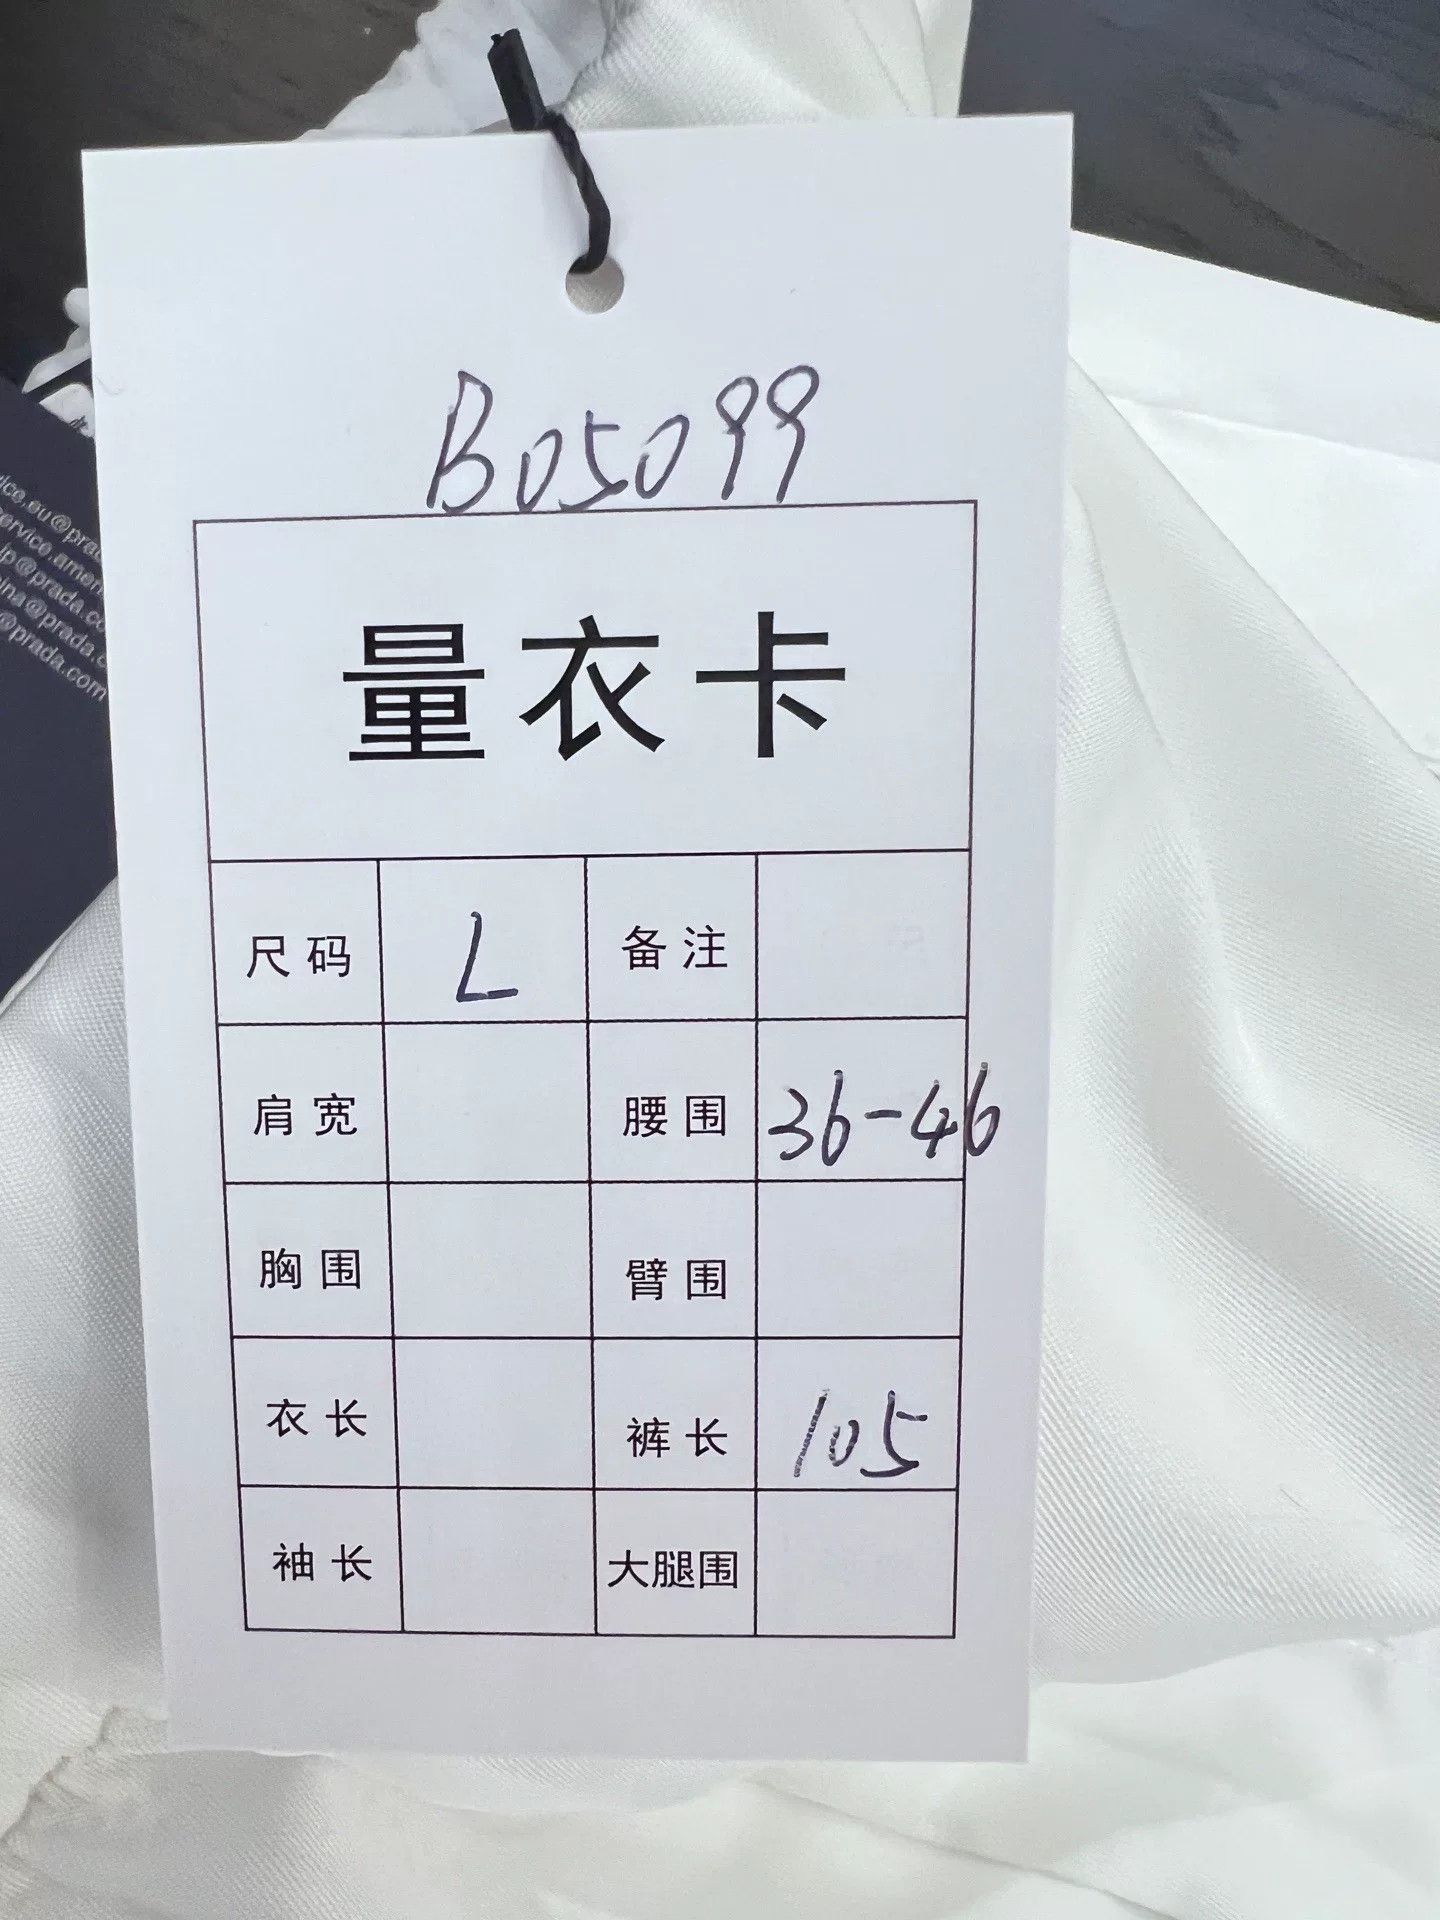 B05099
量衣卡
尺码 L 备注
肩宽 腰围 36-46
胸围 臂围
衣长 裤长 105
袖长 大腿围
ice.eu@prad
ervice.ameri
@prada.co
ina@prada.c
@prada.com